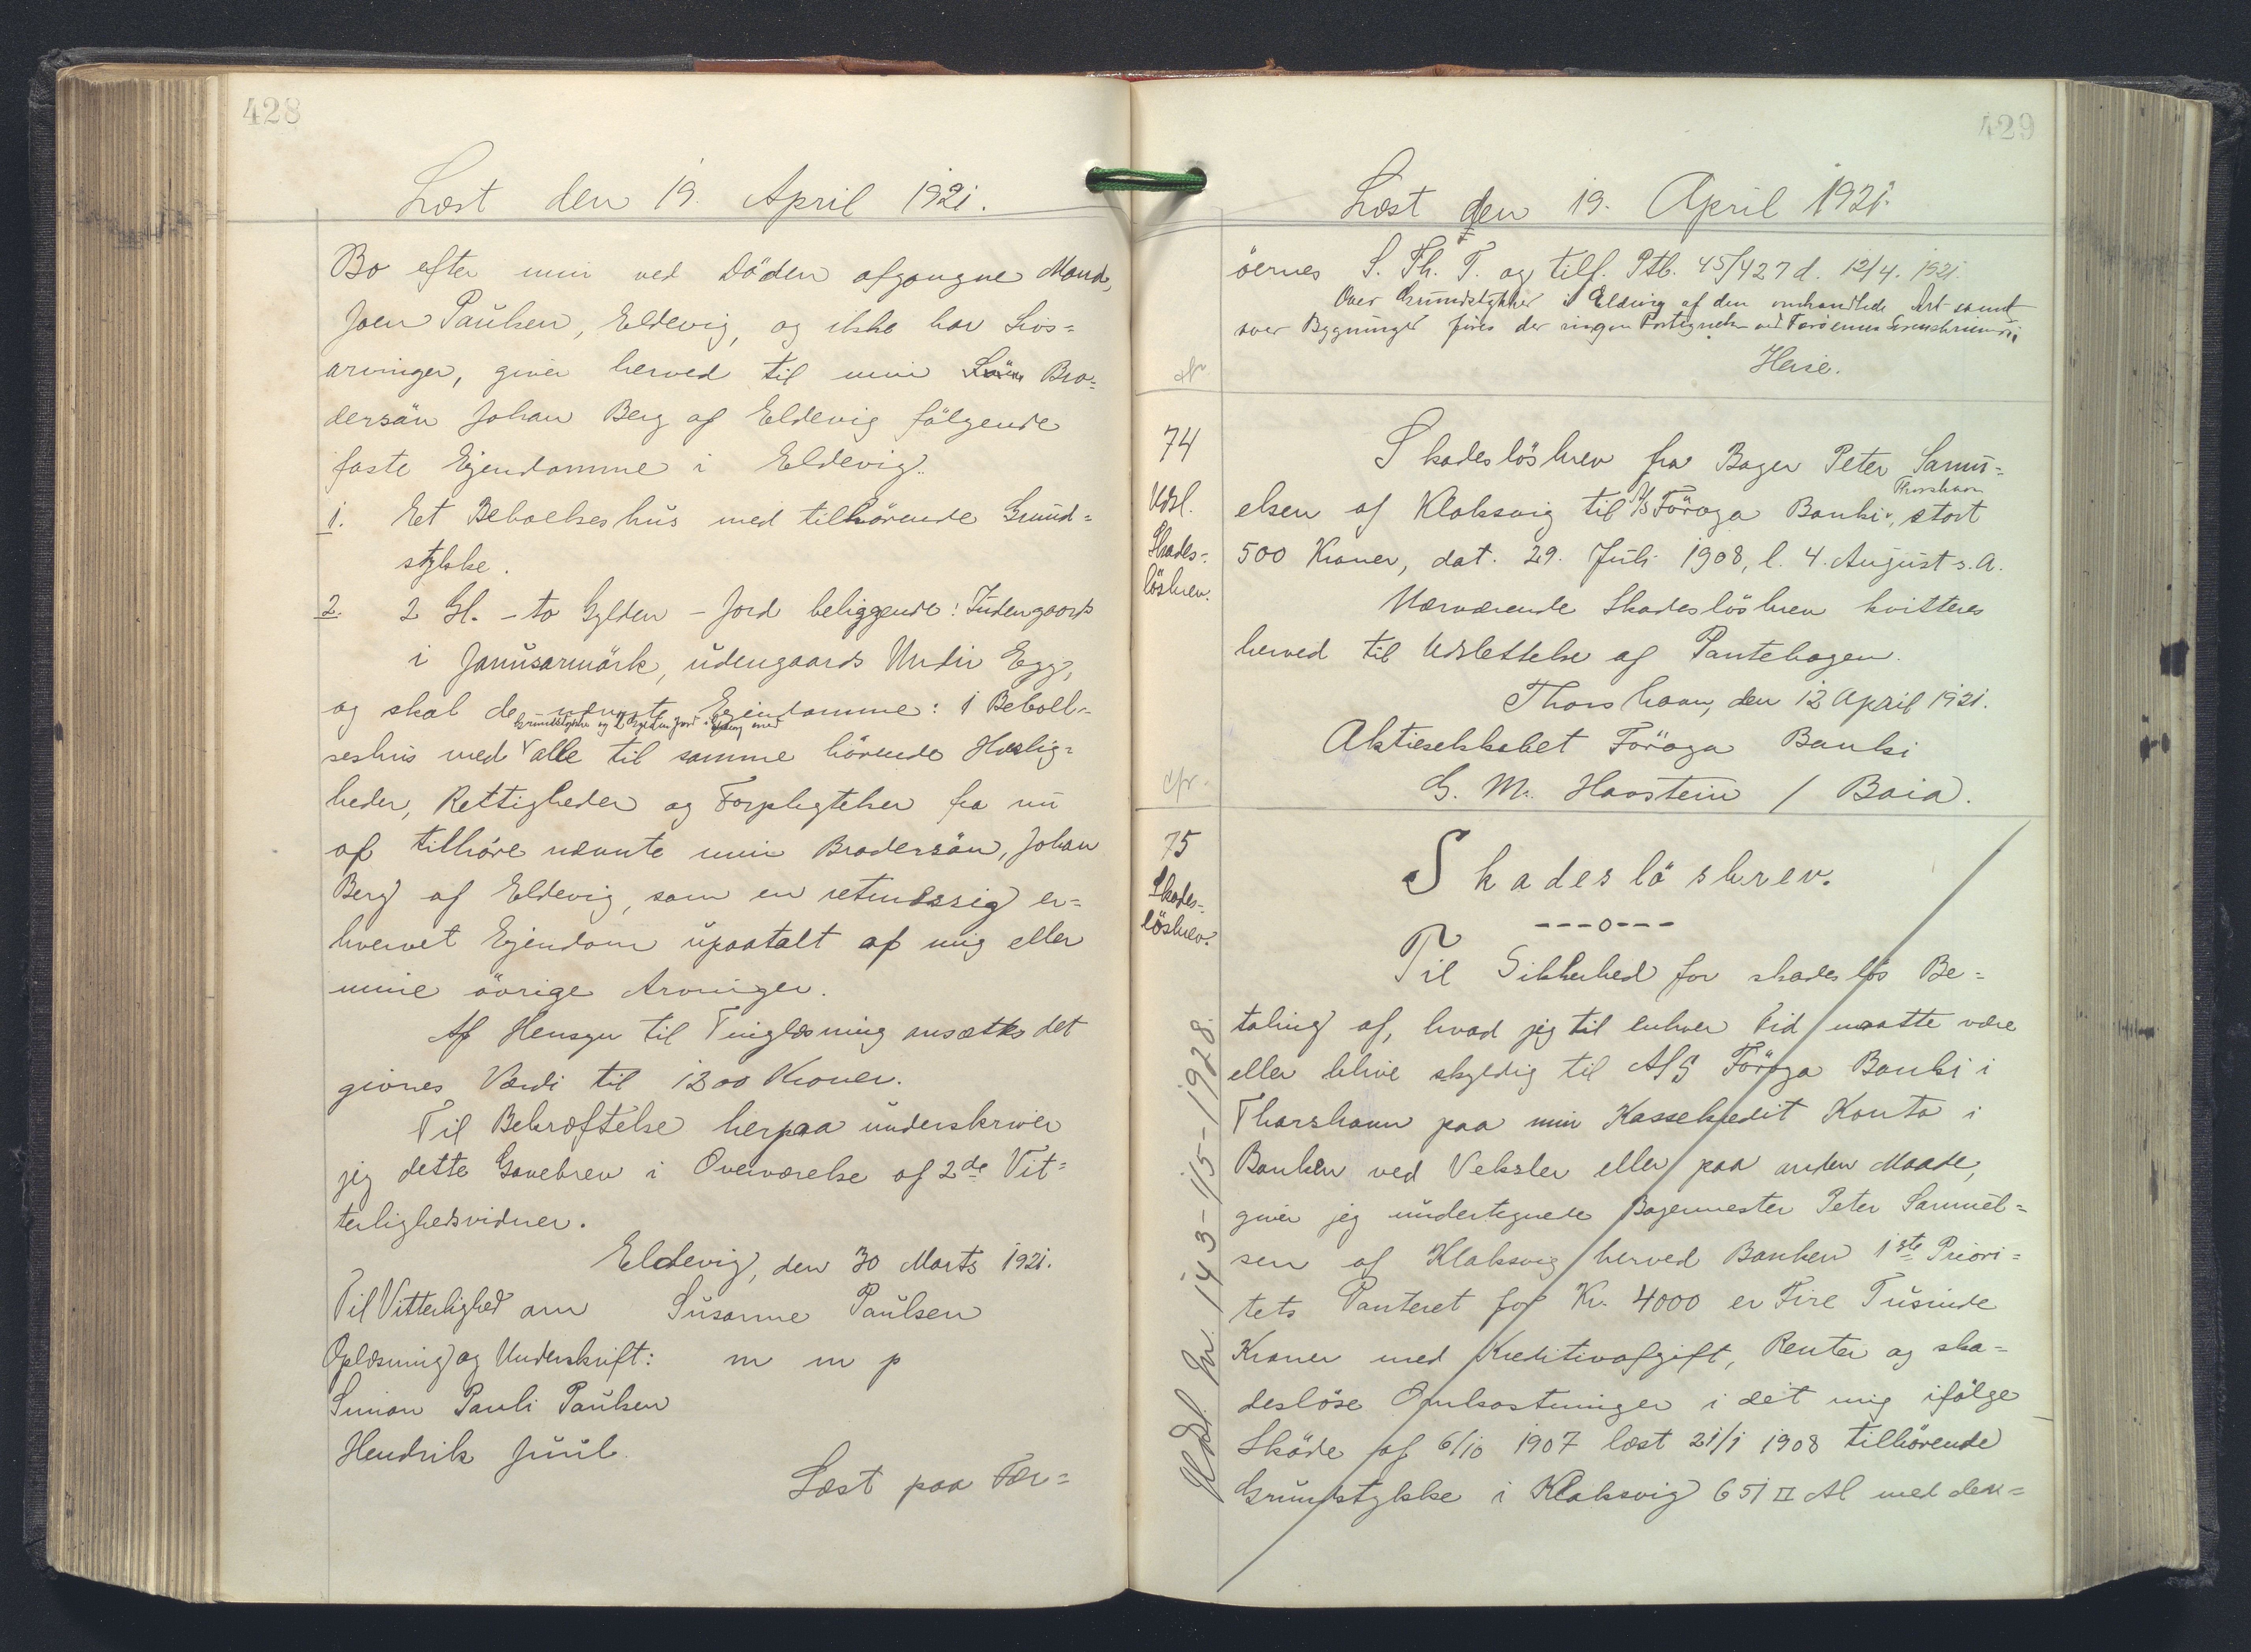 428
Læst den 19. April 1921.
Bo efter min ved Döden afgangne Mand,
Joen Paulsen, Eldevig, og ikke har Livs=
arvinger, giver herved til min Bro=
dersön Johan Berg af Eldevig fölgende
faste Ejendomme i Eldevig:
1. Et Beboelseshus med tilhörende Grund=
stykke.
2. 2 Gl. - to Gylden - Jord beliggende: Indengaards
i Janusarmörk, udengaards Undir Egg,
og skal de nævnte Ejendomme: 1 Beboel=
Grundstykke og 2 Gylden Jord i Eldevig med
seshus med alle til samme hörende Herlig=
heder, Rettigheder og Forpligtelser fra nu
af tilhöre nævnte min Brodersön, Johan
Berg af Eldevig, som en retmæssig er=
hvervet Ejendom upaatalt af mig eller
mine övrige Arvinger.
Af Hensyn til Tinglæsning ansættes det
givnes Værdi til 1300 Kroner.
Til Bekræftelse herpaa underskriver
jeg dette Gavebrev i Overværelse af 2de Vit=
terlighedsvidner.
Eldevig, den 30 Marts 1921.
Til Vitterlighed om Susanne Paulsen
Oplæsning og Underskrift: m m p
Simon Pauli Paulsen
Hendrik Juul.
Læst paa Fær=
429
Læst den 19. April 1921.
öernes S. Th. T. og tilf. Ptb. 45/427 d. 12/4. 1921.
Over Grundstykker i Eldevig af den omhandlede Art samt
over Bygninger föres der ingen Fortegnelse ved Færöernes Sorenskriveri
Heise.
74
Udsl.
Skades=
lösbrev.
Skadeslösbrev fra Bager Peter Samu=
Thorshavn
elsen af Klaksvig til A/S Föroya Banki, stort
500 Kroner, dat. 29. Juli 1908, l. 4. August s. A.
Nærværende Skadeslösbrev kvitteres
herved til Udslettelse af Pantebogen.
Thorshavn, den 12 April 1921.
Aktieselskabet Föroya Banki
G. M. Haostein / Baia.
75
Skades=
lösbrev.
Skadeslösbrev.
---o---
Til Sikkerhed for skadeslös Be=
taling af, hvad jeg til enhver Tid maatte være
eller blive skyldig til A/S Föroya Banki i
Thorshavn paa min Kassekredit Konto i
Banken ved Veksler eller paa anden Maade,
giver jeg undertegnede Bagermester Peter Samuel=
sen af Klaksvig herved Banken 1ste Priori=
tets Panteret for Kr. 4000 er Fire Tusinde
Kroner med Kreditivafgift, Renter og ska=
deslöse Omkostninger i det mig ifölge
Sköde af 6/10 1907 læst 21/1 1908 tilhörende
Grundstykke i Klaksvig 651 □ Al med den=
Udsl. Nr. 143-15-1928.